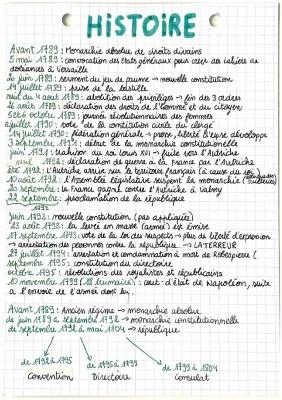 HiSTOiRE
Avant 1789 : Monarchie absolue de droits divins
5 mai 1789 : convocation des états généraux pour créer des cahiers de
doléances à Versaille
20 juin 1789 : serment du jeu de paume → nouvelle constitution
14 juillet 1789 : prise de la bastille
nuit du 4 août 1789 : abolition des privilèges → fin des 3 ordres
26 août 1789 : déclaration des droits de l'homme et du citoyen
5 et 6 octobre 1789 : journée révolutionnaires des femmes
juillet 1790 : vote de la constitution civile du clergé
14 juillet 1790 : fédération générale → presse, liberté d'expr. développe
3 septembre 1791 : début de la monarchie constitutionnelle
juin 1791 : trahison du roi Louis XVI → fuite vers l'Autriche
avril 1792 : déclaration de guerre à la France par l'Autriche
été 1792 : l'Autriche arrive sur le territoire français (à cause du roi
10 août 1792 : l'Assemblée législative suspend la monarchie
20 septembre : la France gagne contre l'Autriche à Valmy
22 septembre : proclamation de la république
juin 1793 : nouvelle constitution (pas appliquée)
23 août 1793 : la levée en masse (armée) est émise
17 septembre 1793 : vote de la loi des suspects → plus de liberté d'expression
→ arrestation des personnes contre la république. → LATERREUR
27 juillet 1794 : arrestation et condamnation à mort de Robespierre
septembre 1795 : constitution du directoire
octobre 1795 : révolutions des royalistes et républicains
10 novembre 1799 (18 brumaire) : coup-d'état de Napoléon, suite
à l'envoie de l'armée dont lui
Avant 1789 : Ancien régime → monarchie absolue
de juin 1789 à septembre 1792 → monarchie constitutionnelle
de septembre 1792 à mai 1804 → république
de 1792 à 1795
de 1795 à 1799
de 1799 à 1804
Convention
Directoire
Consulat